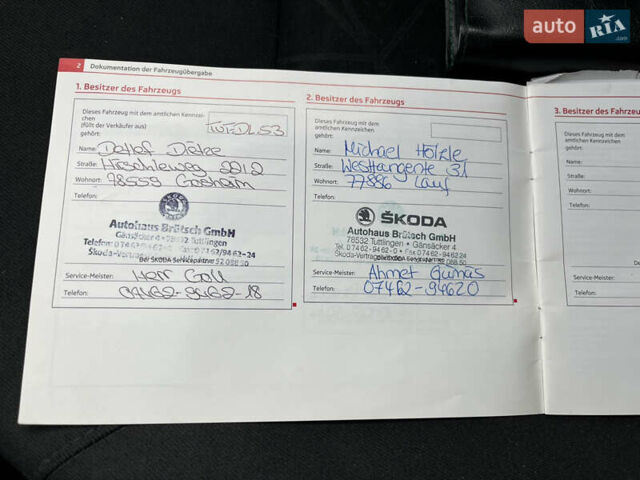 auto RIA.com
2 Dokumentation der Fahrzeugübergabe
1. Besitzer des Fahrzeugs
Dieses Fahrzeug mit dem amtlichen Kennzei-
chen
(füllt der Verkäufer aus)
gehört:
TUT-DL53
Name: Detlef
Straße: 2912
Wohnort: 78559 Gosheim
Telefon:
Autohaus Brütsch GmbH
Gänsäcker 4 · 78532 Tuttlingen
Telefon: 0 74 62/94 62-0 · 74 62/94 62-24
Skoda-Vertrag
Bei SKODA Serviceaktive 52 088 50
Service-Meister: Herr Goll
Telefon: 07462-9462-18
2. Besitzer des Fahrzeugs
Dieses Fahrzeug mit dem
amtlichen Kennzeichen
gehört:
Name: Michael Hölzle
Straße: Westtangente 31
Wohnort: 77886 Lauf
Telefon:
ŠKODA
Autohaus Brütsch GmbH
78532 Tuttlingen · Gänsäcker 4
Tel. 0 74 62/94 62-0 · Fax 07462-94 62 24
Skoda-Vertrag
Service-Meister: Ahmet Gümüs
Telefon: 07462-94620
3. Besitzer des Fahrzeugs
Dieses Fahrzeug mit dem
amtlichen Kennzeichen
gehört:
Name:
Straße:
Wohnort:
Telefon:
Service-Meister:
Telefon: